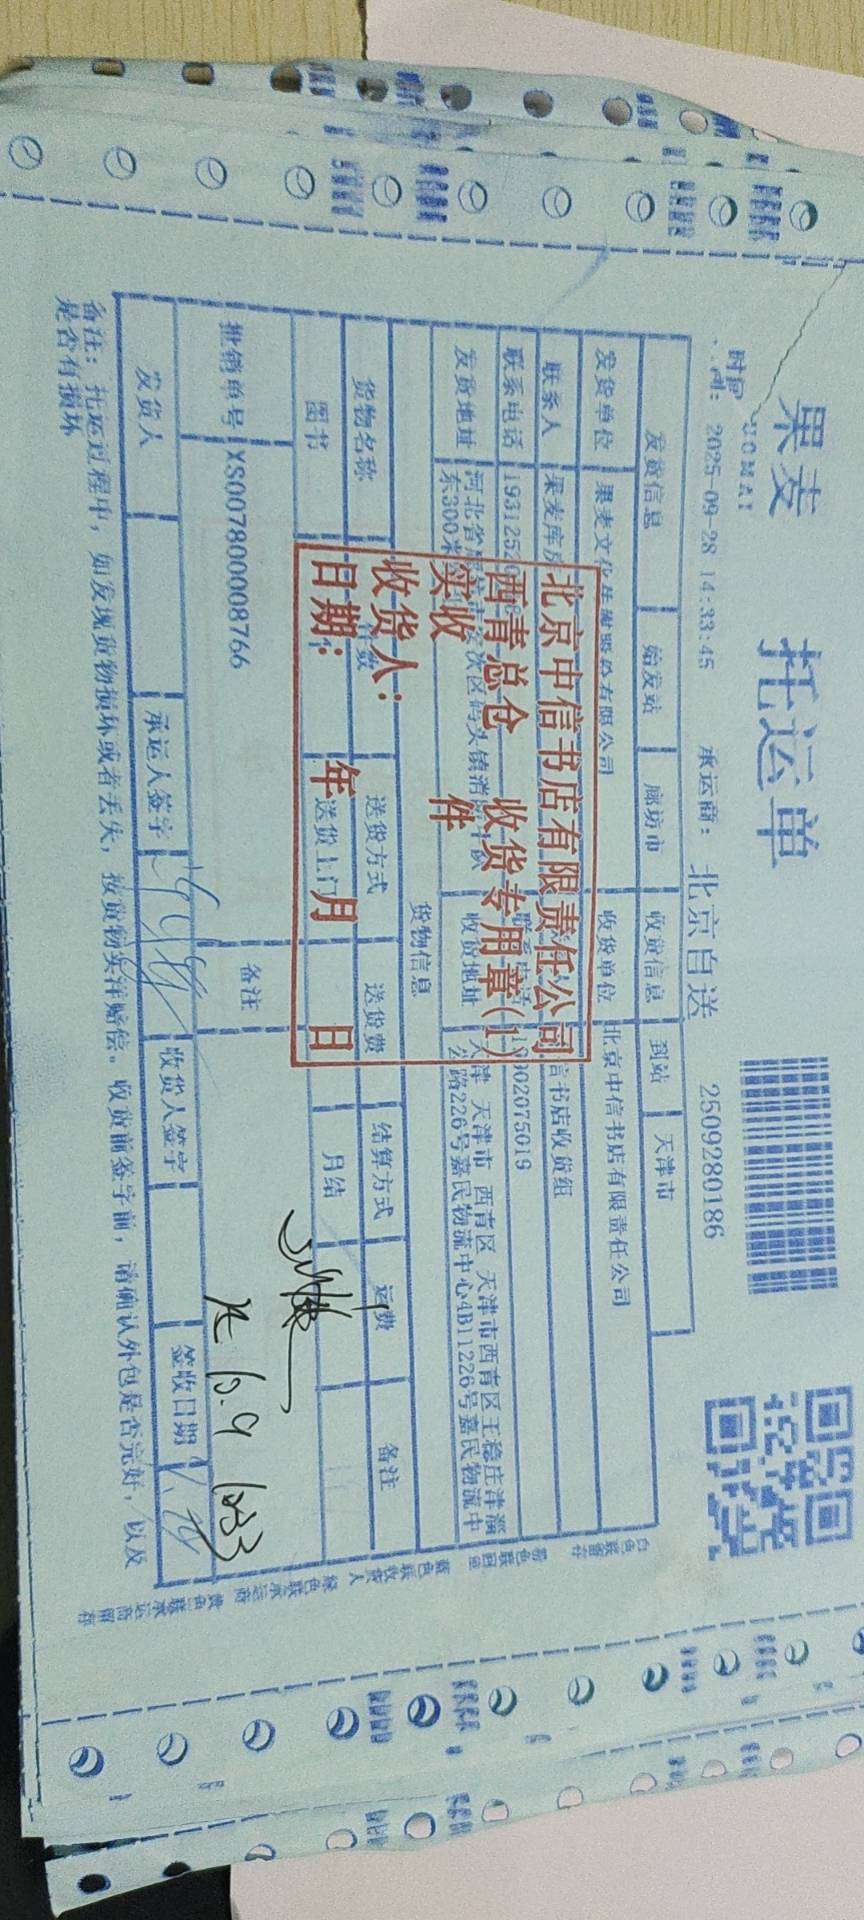 果麦
托运单
2509280186
时间
2025-09-28 14:33:45
承运商：北京自送
发货信息 始发站 廊坊市 收货信息 到站 天津市
发货单位 果麦文化 有限公司 收货单位 北京中信书店有限责任公司
联系人 果麦库房 信书店收货组
联系电话 02075019
发货地址 河北省 码头镇 收货地址 天津 天津市 西青区 天津市西青区王稳庄津淄
东300米 公路226号嘉民物流中心4B11226号嘉民物流中
货物信息
货物名称 件数 送货方式 送货费 结算方式 运费 备注
图书 送货上门 月结
批销单号 XS007800008766 备注
发货人 承运人签字 收货人签字 签收日期
备注：托运过程中，如发现货物损坏或者丢失，按货物实洋赔偿。收货前签字前，请确认外包是否完好，以及
是否有损坏
北京中信书店有限责任公司
西青总仓 收货专用章(1)
实收 件
收货人：
日期： 年 月 日
10.9 1033
白色联留存
蓝色联收货人
绿色联承运商
黄色联承运商留存